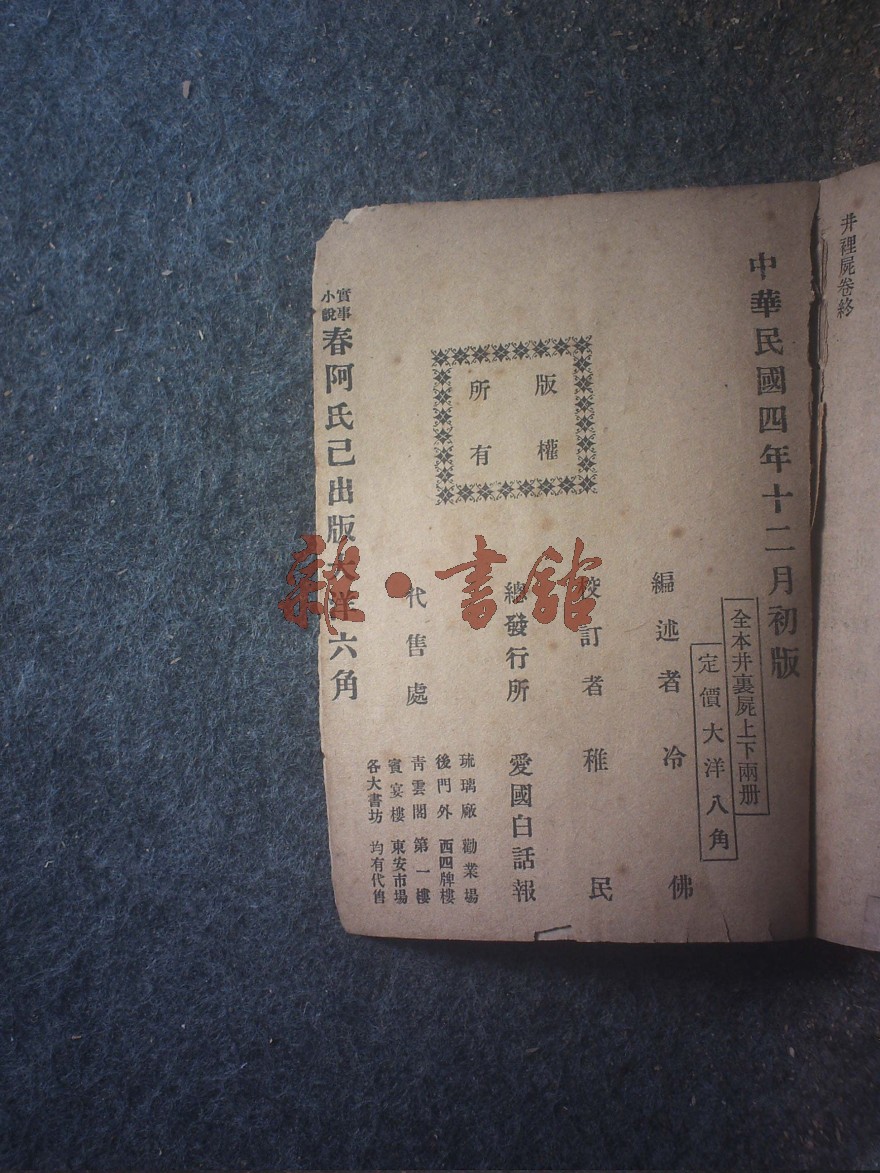 井裡屍卷終
中華民國四年十二月初版
全本井裏屍上下兩册
定價大洋八角
編述者 冷佛
校訂者 稚民
總發行所 愛國白話報
代售處
琉璃廠 勸業場
後門外 西四牌樓
青雲閣 第一樓
賓宴樓 東安市場
各大書坊 均有代售
版權
所有
實事
小說
春阿氏已出版大洋六角
雜·書館